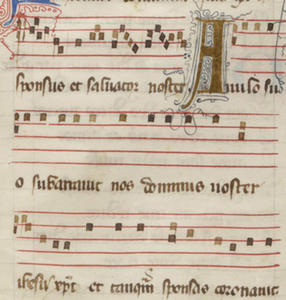 sponsus et saluator noster Anulo su
o subarrauit nos dominus noster
ihesus xpc et tanqm sponsas coronauit